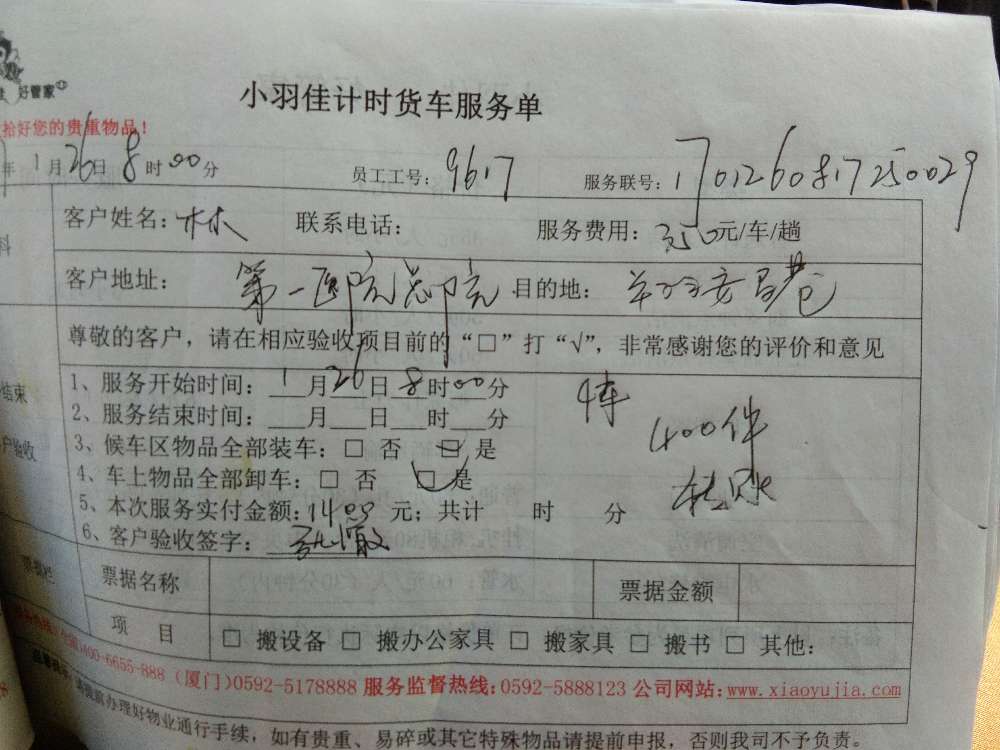 好管家
小羽佳计时货车服务单
拾好您的贵重物品！
年1月26日8时00分 员工工号：9617 服务联号：1701260817250029
客户姓名：林 联系电话： 服务费用：350元/车/趟
客户地址：第一医院总院 目的地：
尊敬的客户，请在相应验收项目前的“□”打“√”，非常感谢您的评价和意见
1、服务开始时间：1月26日8时00分 4车
2、服务结束时间：___月___日___时___分 400件
3、候车区物品全部装车：□ 否 □ 是
4、车上物品全部卸车：□ 否 □ 是
5、本次服务实付金额：1400元；共计 时 分
6、客户验收签字：
票据名称 票据金额
项 目 □ 搬设备 □ 搬办公家具 □ 搬家具 □ 搬书 □ 其他：
400-6655-888（厦门）0592-5178888 服务监督热线：0592-5888123 公司网站：www.xiaoyujia.com
办理好物业通行手续，如有贵重、易碎或其它特殊物品请提前申报，否则我司不予负责。